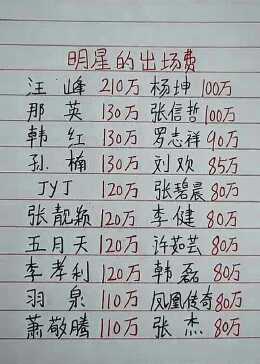 明星的出场费
汪峰 210万 杨坤 100万
那英 130万 张信哲 100万
韩红 130万 罗志祥 90万
孙楠 130万 刘欢 85万
JYJ 120万 张碧晨 80万
张靓颖 120万 李健 80万
五月天 120万 许茹芸 80万
李孝利 120万 韩磊 80万
羽泉 110万 凤凰传奇 80万
萧敬腾 110万 张杰 80万